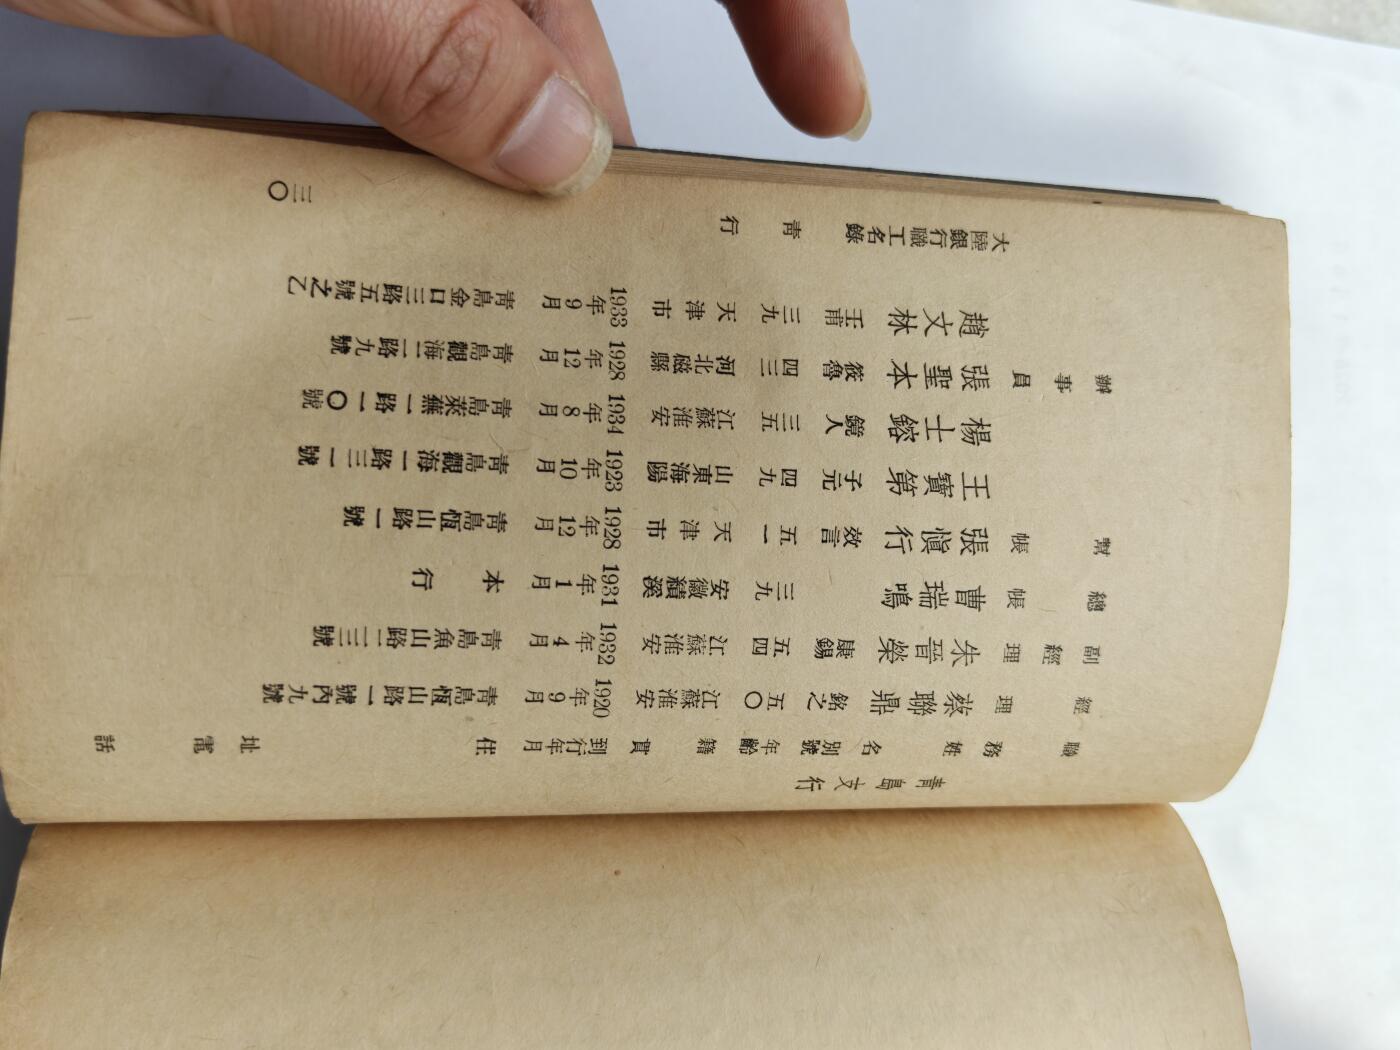 青島支行
職務 姓名 別號 年齡 籍貫 到行年月 住址 電話
經理 蔡聯鼎 銘之 五〇 江蘇淮安 1920年9月 青島恆山路一號內九號
副經理 朱晉榮 康錫 五四 江蘇淮安 1932年4月 青島魚山路二三號
總帳 曹瑞鳴 三九 安徽績溪 1931年1月 本行
幫帳 張愼行 效言 五一 天津市 1928年12月 青島恆山路一號
王寶第 子元 四九 山東海陽 1923年10月 青島觀海一路三一號
楊士鎔 鏡人 三五 江蘇淮安 1934年8月 青島萊蕪一路一〇號
辦事員 張聖本 筱魯 四三 河北磁縣 1928年12月 青島觀海二路九號
趙文林 壬甫 三九 天津市 1933年9月 青島金口三路五號之乙
大陸銀行職工名錄 青行 三〇